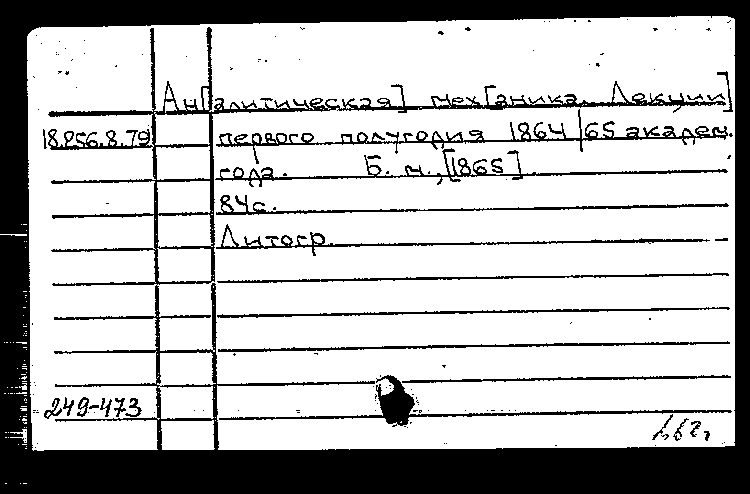 Ан[алитическая] мех[аника. Лекции]
18.256.8.79 первого полугодия 1864/65 академ.
года. Б. м., [1865]
84с.
Литогр.
249-473